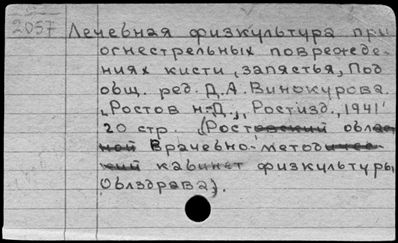 2057 Лечебная физкультура при
огнестрельных поврежде-
ниях кисти, запястья, Под
общ. ред. Д.А. Винокурова.
„Ростов н-Д.„, Ростизд., 1941‘
20 стр. (Ростовский облас
ной Врачебно-методичес-
кий кабинет физкультуры
Облздрава).